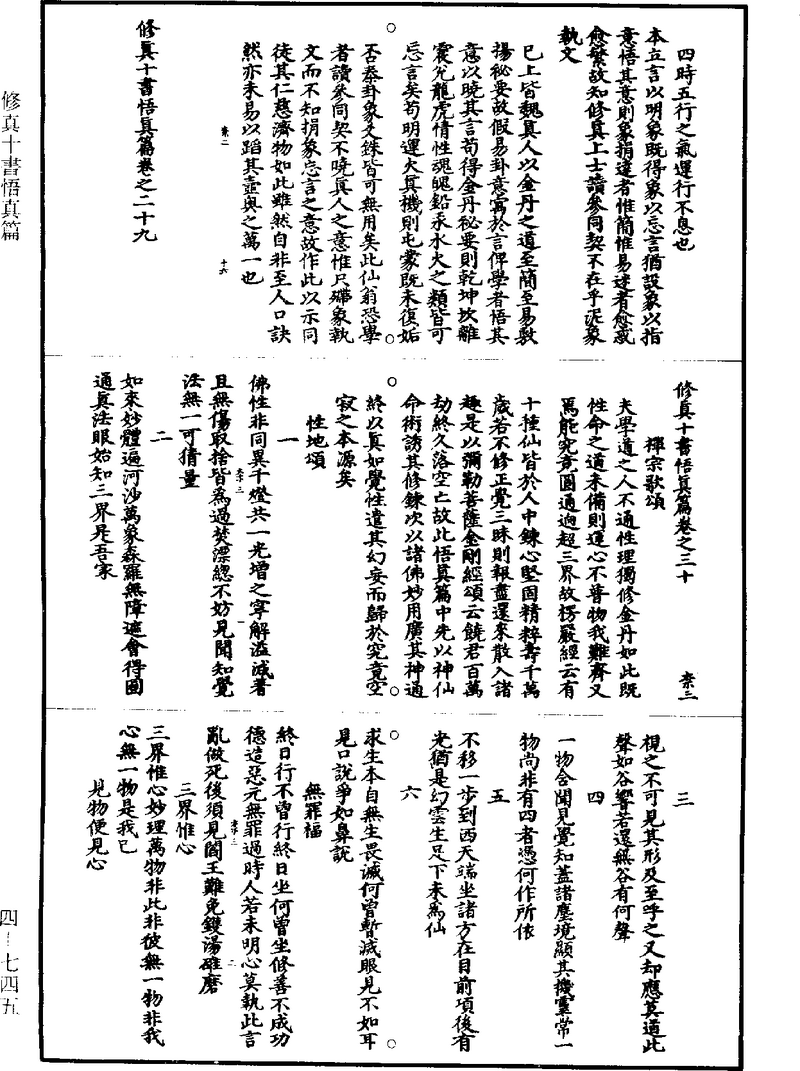 四時五行之氣運行不息也
本立言以明象既得象以忘言猶設象以指
意悟其意則象捐達者惟簡惟易迷者愈惑
愈繁故知修真上士讀參同契不在乎泥象
執文
已上皆魏真人以金丹之道至簡至易敷
揚秘要故假易卦意寓於言俾學者悟其
意以曉其言苟得金丹秘要則乾坤坎離
震兌龍虎情性魂魄鉛汞水火之類皆可
忘言矣苟明運火真機則屯蒙既未復姤
否泰卦象爻銖皆可無用矣此仙翁恐學
者讀參同契不曉真人之意惟只殢象執
文而不知捐象忘言之意故作此以示同
徒其仁慈濟物如此雖然自非至人口訣
然亦未易以蹈其壼奧之萬一也
柰二
十六
修真十書悟真篇卷之二十九
修真十書悟真篇卷之三十
柰三
禪宗歌頌
夫學道之人不通性理獨修金丹如此既
性命之道未備則運心不普物我難齊又
焉能究竟圓通迥超三界故楞嚴經云有
十種仙皆於人中鍊心堅固精粹壽千萬
歲若不修正覺三昧則報盡還來散入諸
趣是以彌勒菩薩金剛經頌云饒君百萬
劫終久落空亡故此悟真篇中先以神仙
命術誘其修鍊次以諸佛妙用廣其神通
終以真如覺性遣其幻妄而歸於究竟空
寂之本源矣
性地頌
一
佛性非同異千燈共一光增之寧解溢減著
柰三
一
且無傷取捨皆為過焚漂總不妨見聞知覺
法無一可猜量
二
如來妙體遍河沙萬象森羅無障遮會得圓
通真法眼始知三界是吾家
三
視之不可見其形及至呼之又却應莫道此
聲如谷響若還無谷有何聲
四
一物含聞見覺知蓋諸塵境顯其機靈常一
物尚非有四者憑何作所依
五
不移一步到西天端坐諸方在目前項後有
光猶是幻雲生足下未為仙
六
求生本自無生畏滅何曾暫滅眼見不如耳
見口說爭如鼻說
無罪福
終日行不曾行終日坐何曾坐修善不成功
德造惡元無罪過時人若未明心莫執此言
柰三
二
亂做死後須見閻王難免鑊湯碓磨
三界惟心
三界惟心妙理萬物非此非彼無一物非我
心無一物是我己
見物便見心
修真十書悟真篇
四—七四五